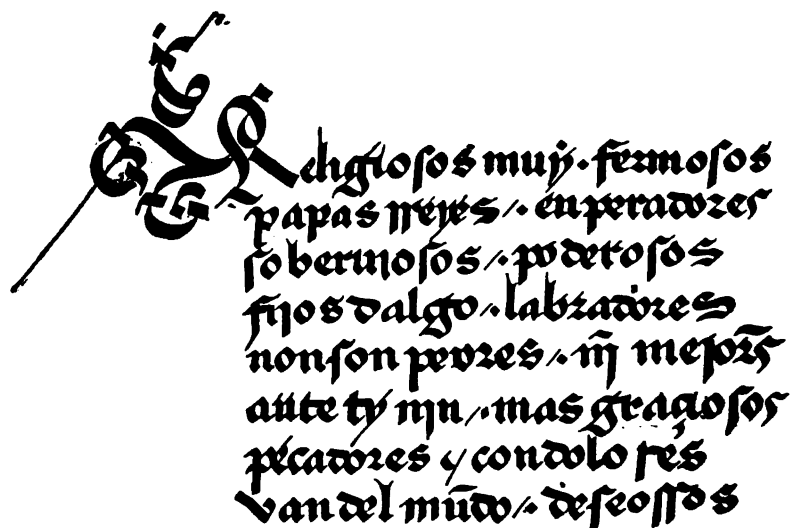 Religiosos muy · fermosos
papas rreyes /· enperadores
soberuiosos /· poderosos
fijos dalgo /· labradores
non son peores /· nĩ mejor̃s
ante ty nin /· mas graçiosos
pecadores y con dolores
van del mũdo /· deseossos